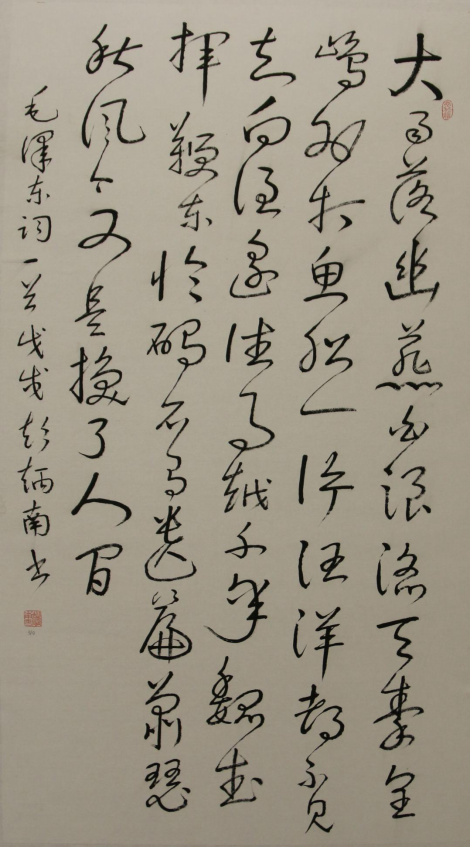 大雨落幽燕白浪滔天秦皇
岛外打鱼船一片汪洋都不见
知向谁边往事越千年魏武
挥鞭东临碣石有遗篇萧瑟
秋风今又是换了人间
毛泽东词一首戊戌彭炳南书